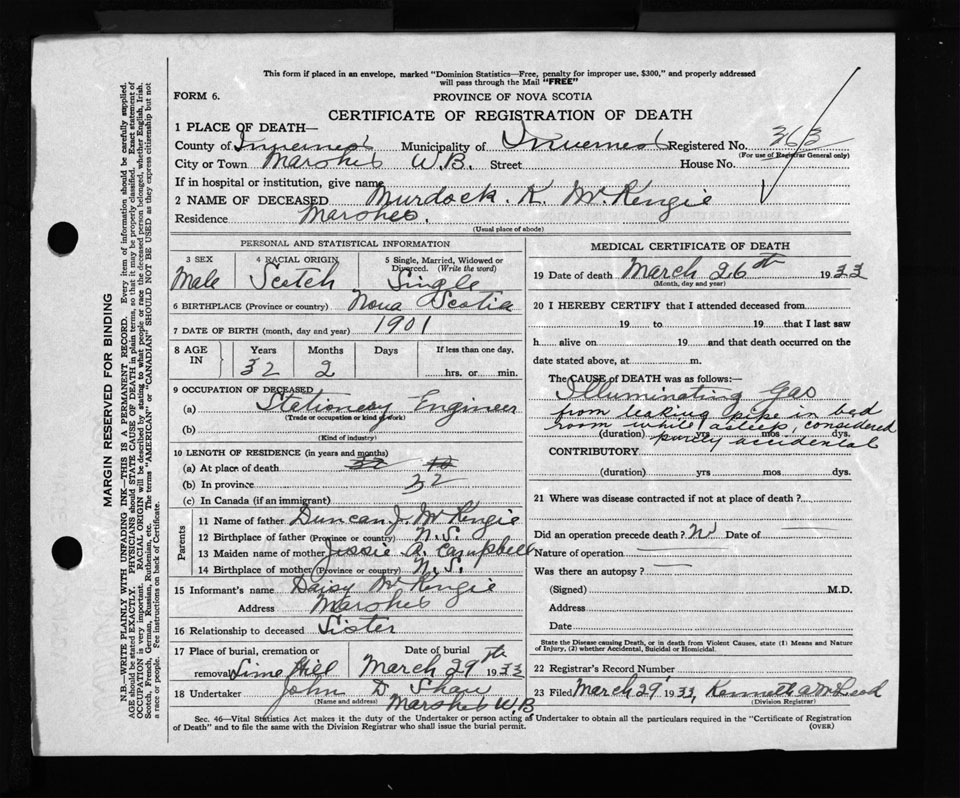 This form if placed in an envelope, marked "Dominion Statistics—Free, penalty for improper use, $300," and properly addressed
will pass through the Mail "FREE"
FORM 6.
PROVINCE OF NOVA SCOTIA
CERTIFICATE OF REGISTRATION OF DEATH
1 PLACE OF DEATH—
County of Inverness Municipality of Inverness Registered No. 363
(For use of Registrar General only)
City or Town W.B. Street House No.
If in hospital or institution, give name
2 NAME OF DECEASED Murdock. K. McKenzie
Residence
(Usual place of abode)
PERSONAL AND STATISTICAL INFORMATION
3 SEX 4 RACIAL ORIGIN 5 Single, Married, Widowed or
Divorced. (Write the word)
Male Scotch Single
6 BIRTHPLACE (Province or country) Nova Scotia
7 DATE OF BIRTH (month, day and year) 1901
8 AGE IN Years Months Days If less than one day,
32 2 hrs. or min.
9 OCCUPATION OF DECEASED
(a) Stationery Engineer
(Trade or occupation or kind of work)
(b)
(Kind of industry)
10 LENGTH OF RESIDENCE (in years and months)
(a) At place of death 32
(b) In province 32
(c) In Canada (if an immigrant)
Parents
11 Name of father Duncan J. McKenzie
12 Birthplace of father (Province or country) N.S.
13 Maiden name of mother Jessie A. Campbell
14 Birthplace of mother (Province or country) N.S.
15 Informant's name Daisy McKenzie
Address
16 Relationship to deceased Sister
17 Place of burial, cremation or Date of burial
removal Lime Hill March 29th 1933
18 Undertaker John D Shaw
(Name and address) W.B
MEDICAL CERTIFICATE OF DEATH
19 Date of death March 26th 1933
(Month, day and year)
20 I HEREBY CERTIFY that I attended deceased from
19 to 19 that I last saw
h alive on 19 and that death occurred on the
date stated above, at m.
The CAUSE OF DEATH was as follows:—
Illuminating Gas
from leaking pipe in bed
room while asleep, considered
(duration) yrs mos dys.
purely accidental
CONTRIBUTORY
(duration) yrs mos dys.
21 Where was disease contracted if not at place of death?
Did an operation precede death? Date of
Nature of operation
Was there an autopsy?
(Signed) M.D.
Address
Date
State the Disease causing Death, or in death from Violent Causes, state (1) Means and Nature
of Injury, (2) whether Accidental, Suicidal or Homicidal.
22 Registrar's Record Number
23 Filed March 29' 1933,
(Division Registrar)
Sec. 46—Vital Statistics Act makes it the duty of the Undertaker or person acting as Undertaker to obtain all the particulars required in the "Certificate of Registration
of Death" and to file the same with the Division Registrar who shall issue the burial permit. (OVER)
MARGIN RESERVED FOR BINDING
N.B.—WRITE PLAINLY WITH UNFADING INK—THIS IS A PERMANENT RECORD. Every item of information should be carefully supplied.
AGE should be stated EXACTLY. PHYSICIANS should STATE CAUSE OF DEATH in plain terms, so that it may be properly classified. Exact statement of
OCCUPATION is very important. RACIAL ORIGIN will be described by stating to what people or race the deceased person belonged, whether English, Irish,
Scotch, French, German, Russian, Ruthenian, etc. The terms "AMERICAN" or "CANADIAN" SHOULD NOT BE USED as they express citizenship but not
a race or people. See instructions on back of Certificate.